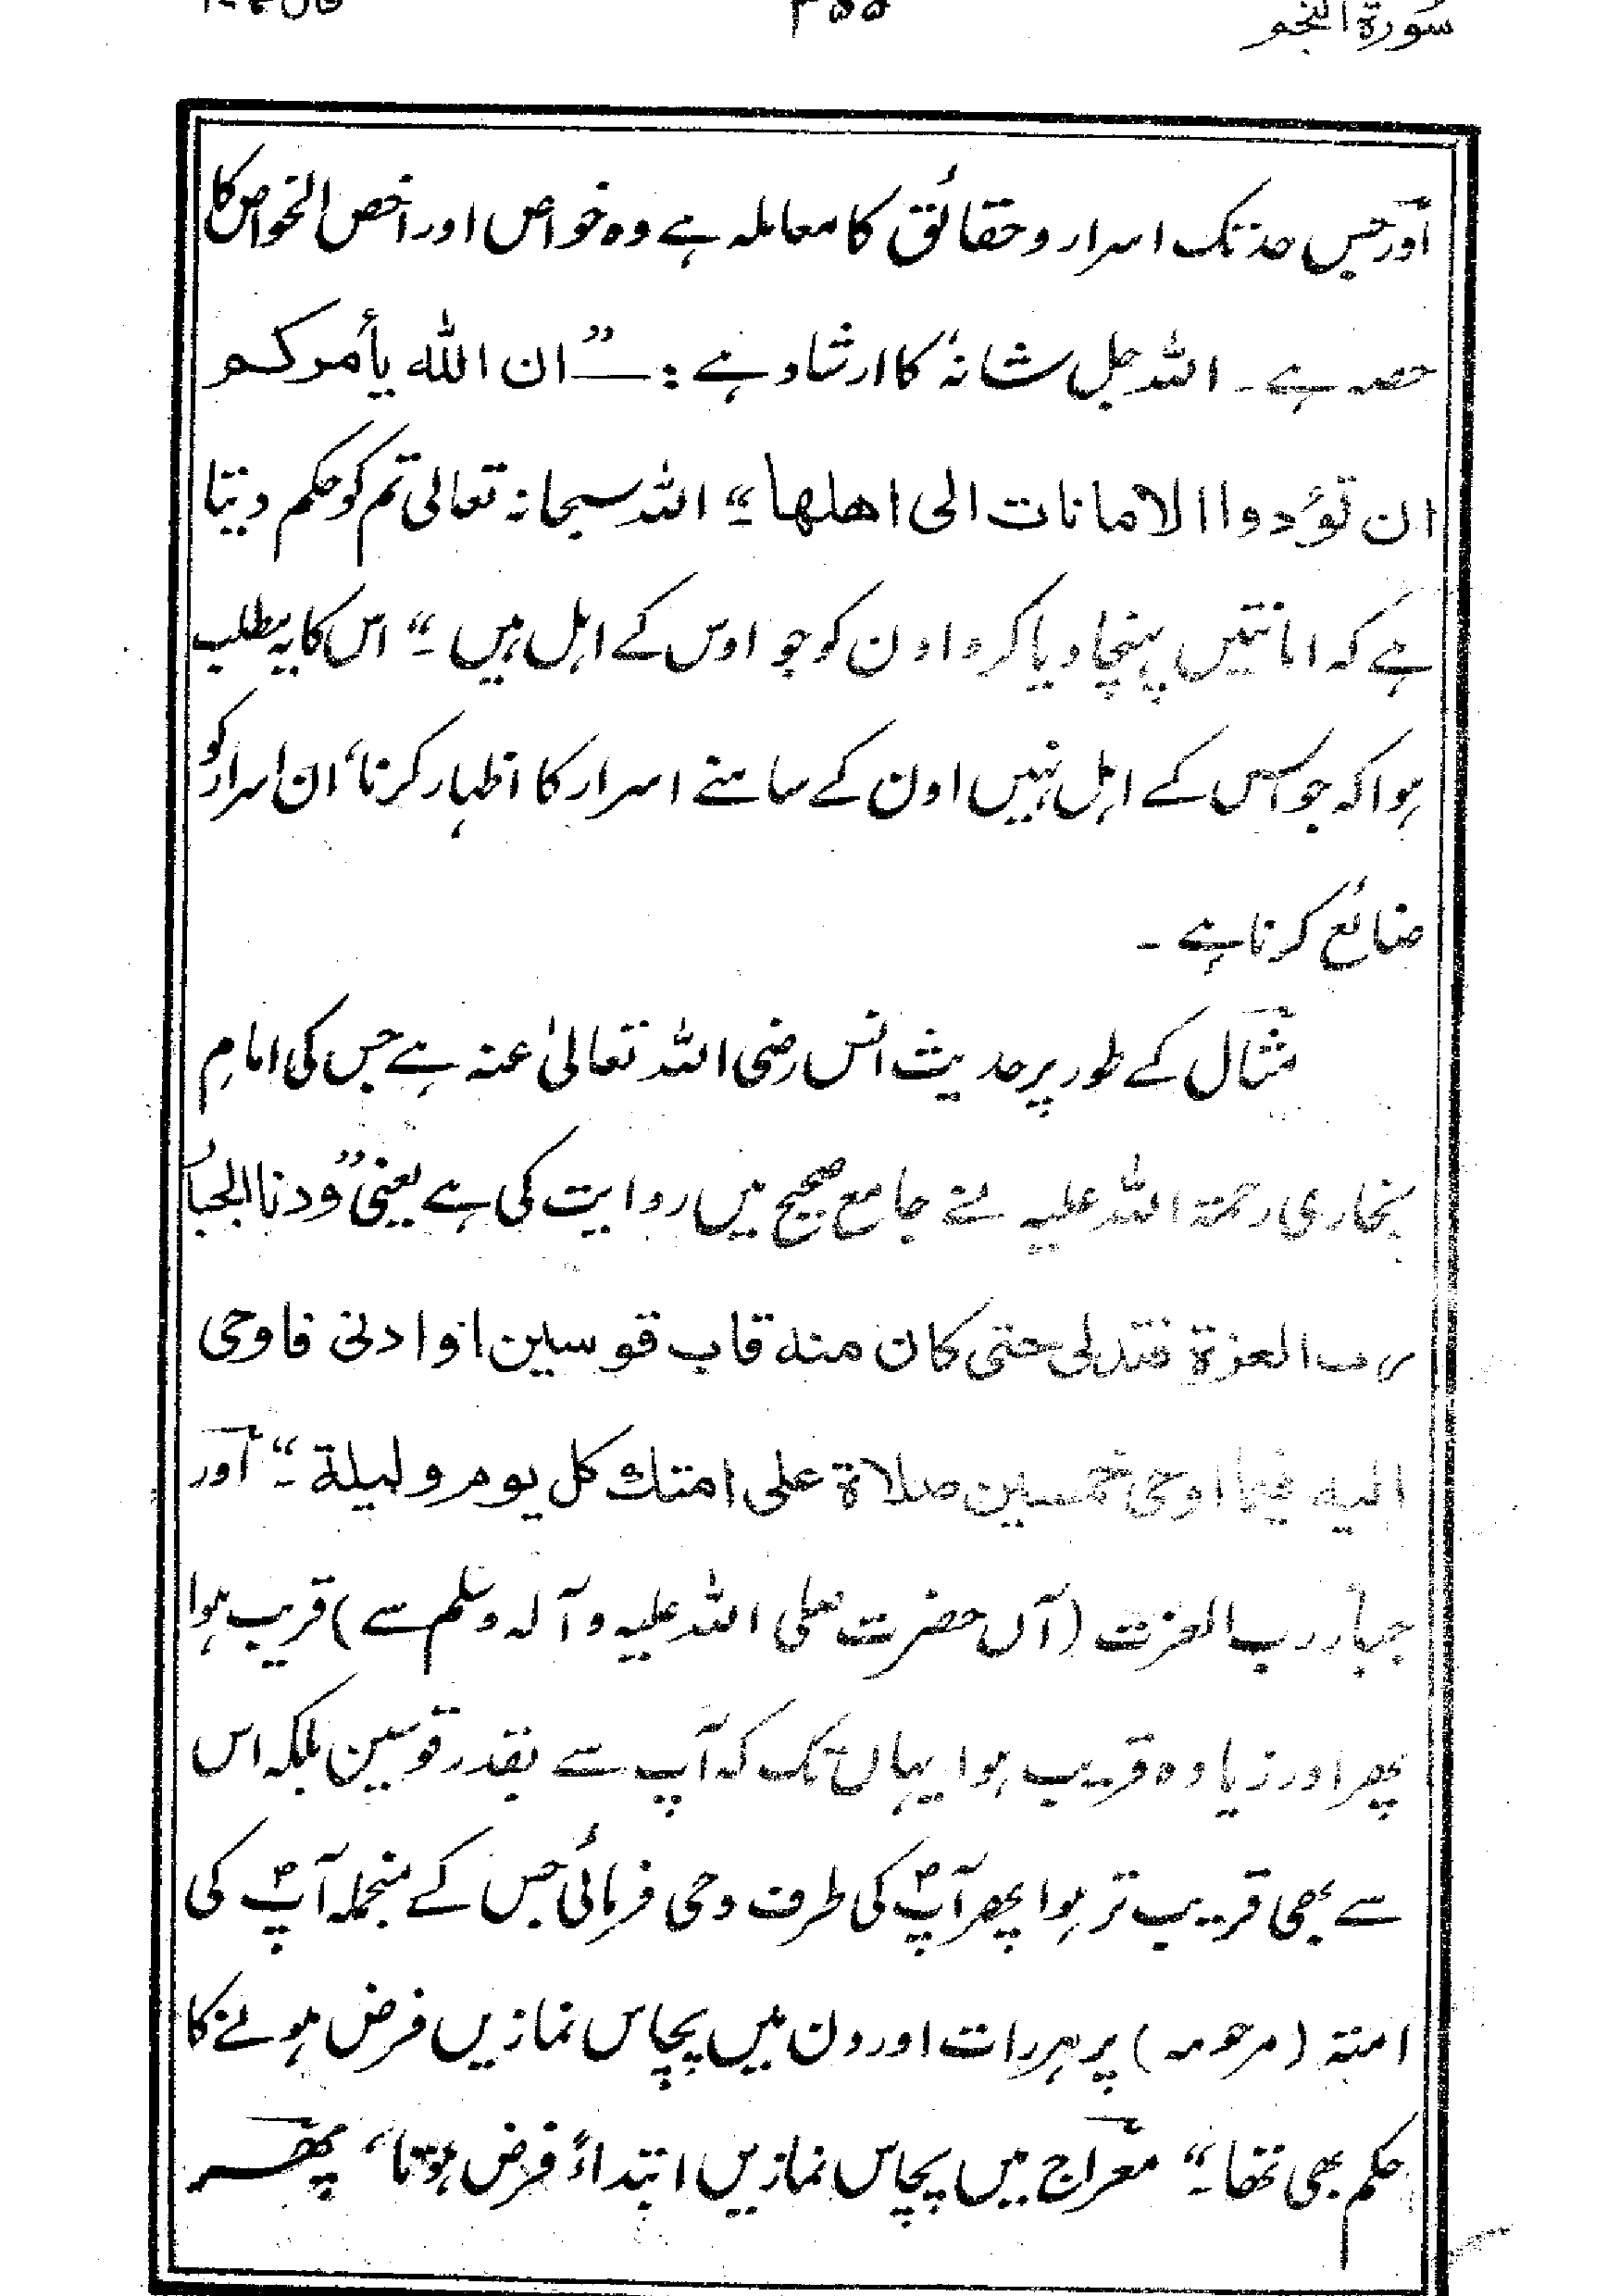 سورة النجم
اَور جس حد تک اسرار و حقائق کا معاملہ ہے وہ خواص اور اخص الخواص کا
حصہ ہے ۔ اللہ جل شانہٗ کا ارشاد ہے :ــ ”ان اللہ یأمرکم
ان تؤدوا الامانات الی اھلھا ۔“ اللہ سبحانہ تعالی تم کو حکم دیتا
ہے کہ امانتیں پہنچا دیا کرو اون کو جو اوس کے اہل ہیں ۔“ اس کا یہ مطلب
ہوا کہ جو اس کے اہل نہیں اون کے سامنے اسرار کا اظہار کرنا، ان اسرار کو
ضائع کرنا ہے ۔
مثال کے طور پر حدیث انس رضی اللہ تعالیٰ عنہ ہے جس کی امامِ
بخاری رحمۃ اللہ علیہ نے جامع صحیح میں روایت کی ہے یعنی ”ودنا الجبار
رب العزة فتدلی حتی کان منه قاب قوسین او ادنی فاوحی
الیه فیما اوحی خمسین صلاة علی امتك کل یوم ولیلة ۔“ اَور
جبار رب العزت (آں حضرت صلی اللہ علیہ و آلہ وسلم سے) قریب ہوا
پھر اور زیادہ قریب ہوا یہاں تک کہ آپ سے بقدر قوسین بلکہ اس
سے بھی قریب تر ہوا پھر آپؐ کی طرف وحی فرمائی جس کے منجملہ آپؐ کی
امتہ (مرحومہ) پر ہر رات اور دن میں پچاس نمازیں فرض ہونے کا
حکم بھی تھا ۔“ معراج میں پچاس نمازیں ابتداءً فرض ہوتا، پھر